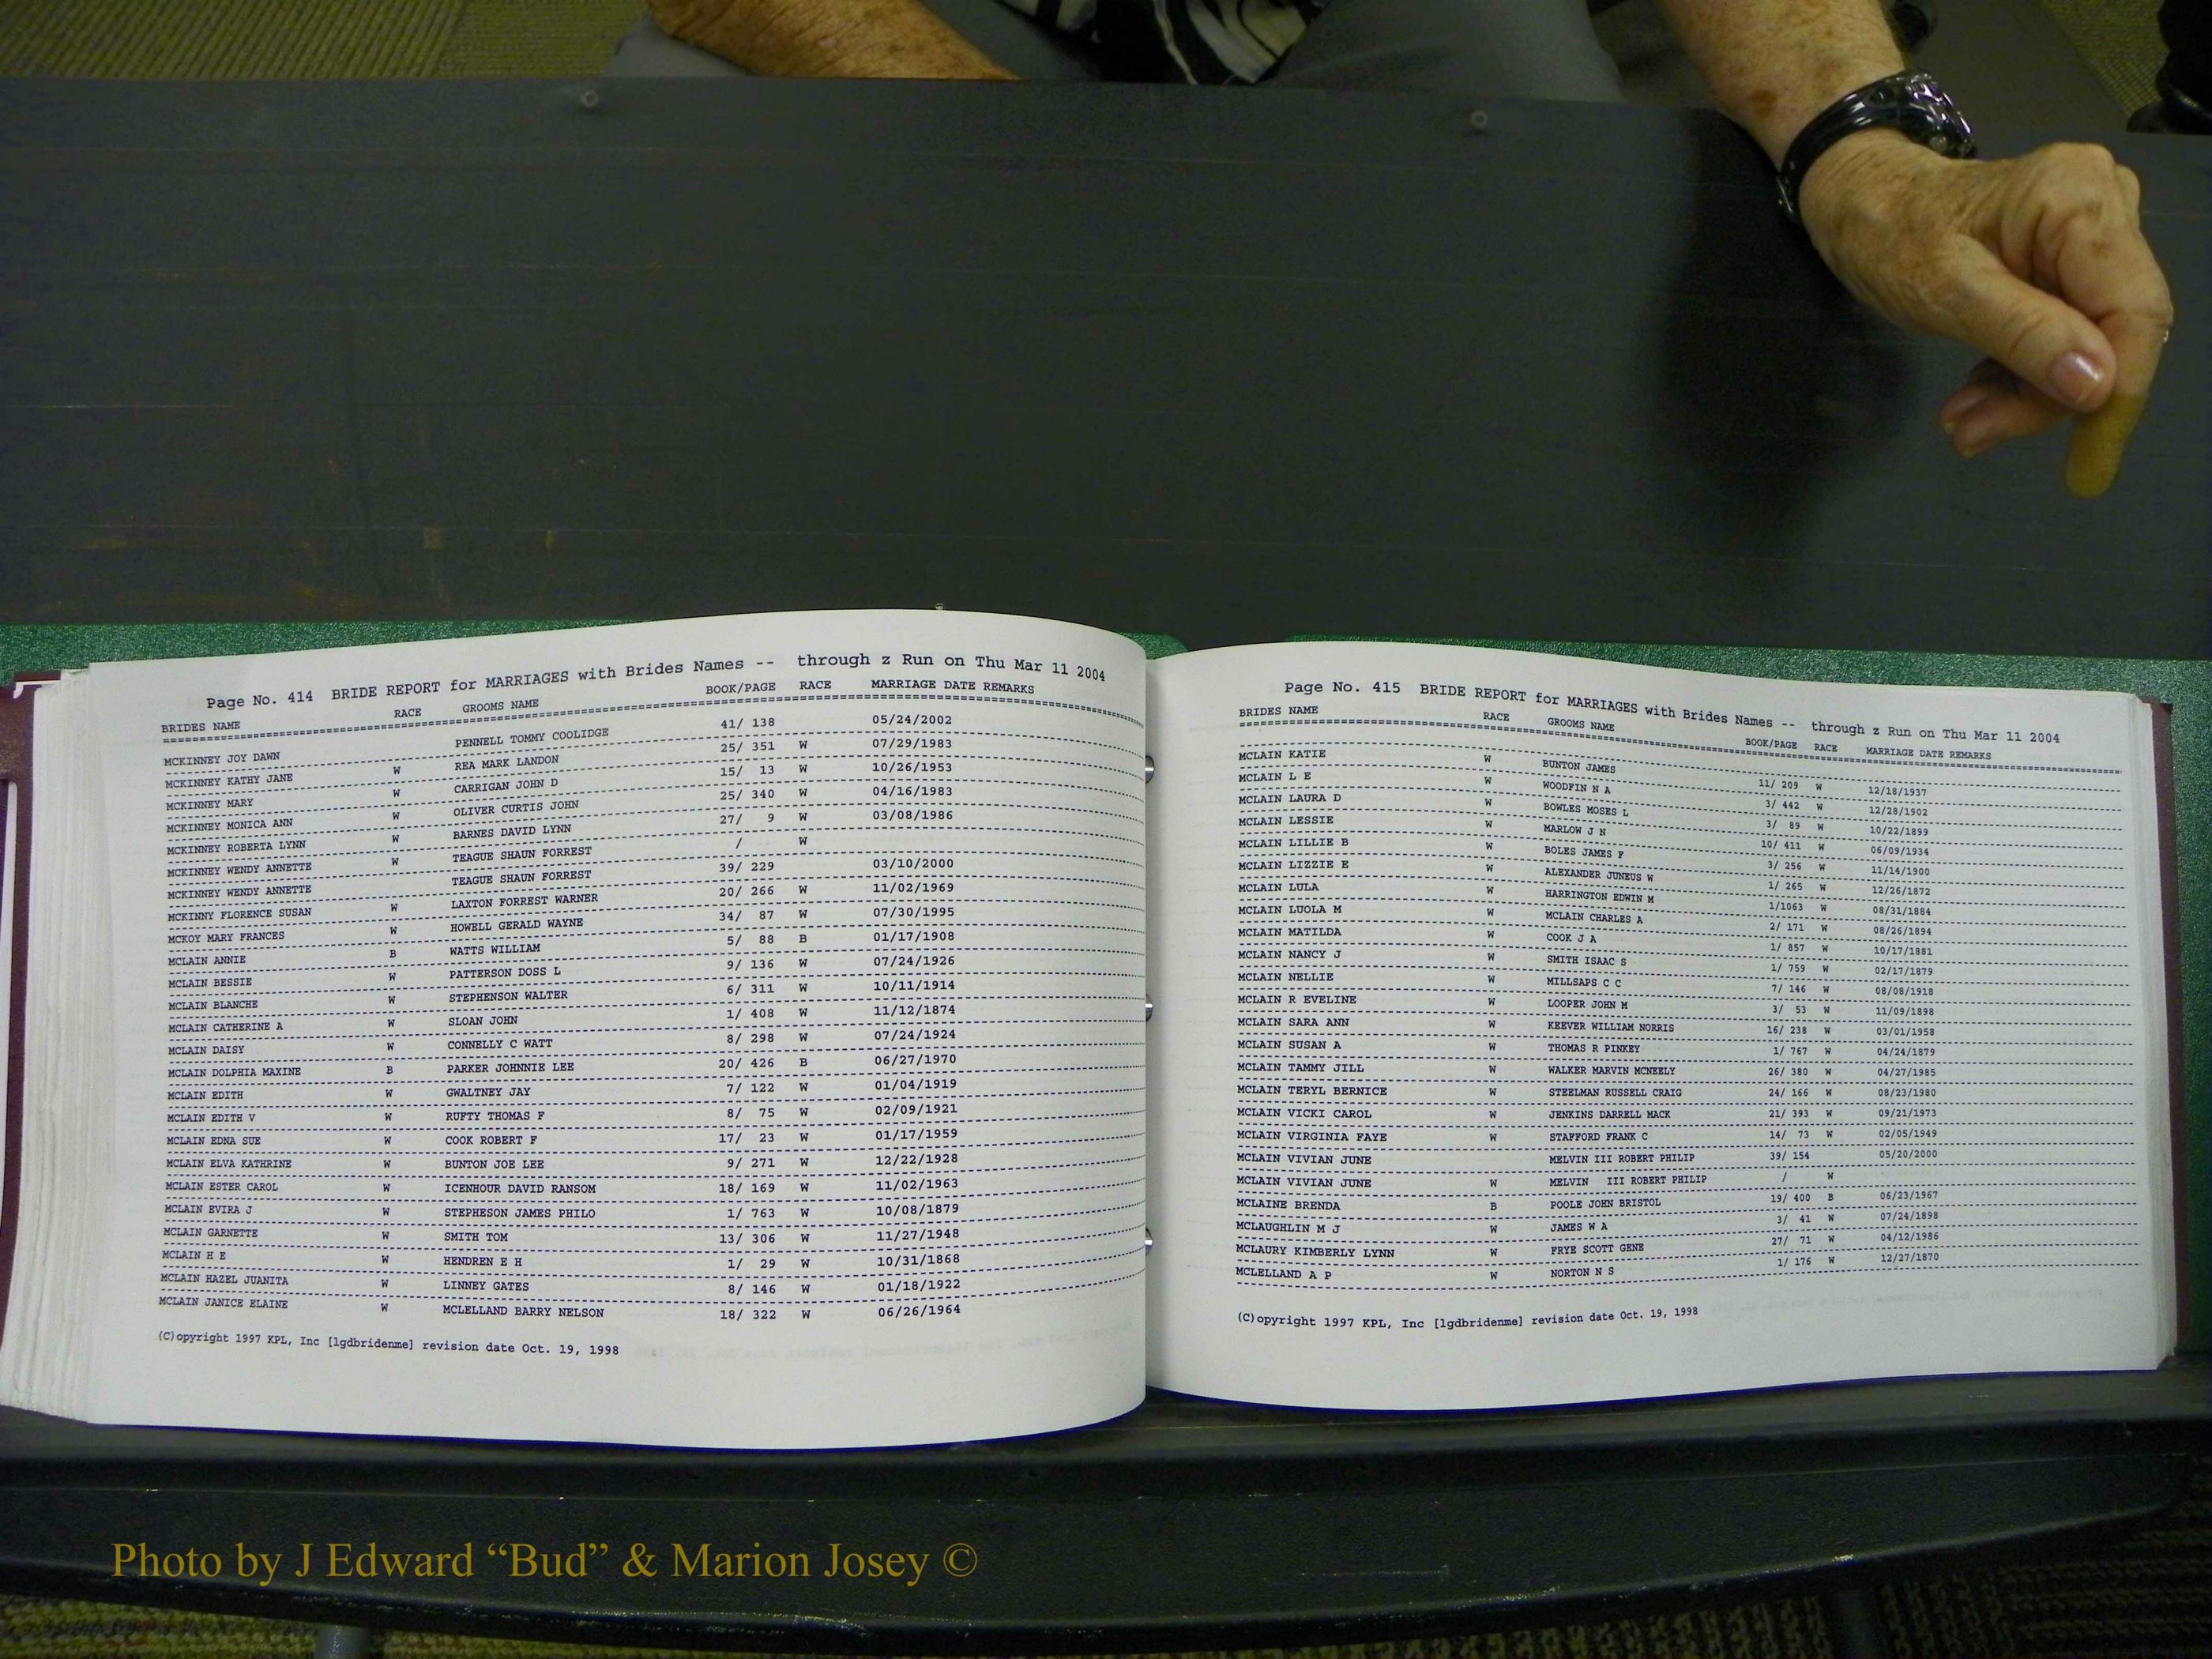 Page No. 414 BRIDE REPORT for MARRIAGES with Brides Names -- through z Run on Thu Mar 11 2004
BRIDES NAME RACE GROOMS NAME BOOK/PAGE RACE MARRIAGE DATE REMARKS
MCKINNEY JOY DAWN PENNELL TOMMY COOLIDGE 41/ 138 05/24/2002
MCKINNEY KATHY JANE W REA MARK LANDON 25/ 351 W 07/29/1983
MCKINNEY MARY W CARRIGAN JOHN D 15/ 13 W 10/26/1953
MCKINNEY MONICA ANN W OLIVER CURTIS JOHN 25/ 340 W 04/16/1983
MCKINNEY ROBERTA LYNN W BARNES DAVID LYNN 27/ 9 W 03/08/1986
MCKINNEY WENDY ANNETTE W TEAGUE SHAUN FORREST / W
MCKINNEY WENDY ANNETTE TEAGUE SHAUN FORREST 39/ 229 03/10/2000
MCKINNY FLORENCE SUSAN W LAXTON FORREST WARNER 20/ 266 W 11/02/1969
MCKOY MARY FRANCES W HOWELL GERALD WAYNE 34/ 87 W 07/30/1995
MCLAIN ANNIE B WATTS WILLIAM 5/ 88 B 01/17/1908
MCLAIN BESSIE W PATTERSON DOSS L 9/ 136 W 07/24/1926
MCLAIN BLANCHE W STEPHENSON WALTER 6/ 311 W 10/11/1914
MCLAIN CATHERINE A W SLOAN JOHN 1/ 408 W 11/12/1874
MCLAIN DAISY W CONNELLY C WATT 8/ 298 W 07/24/1924
MCLAIN DOLPHIA MAXINE B PARKER JOHNNIE LEE 20/ 426 B 06/27/1970
MCLAIN EDITH W GWALTNEY JAY 7/ 122 W 01/04/1919
MCLAIN EDITH V W RUFTY THOMAS F 8/ 75 W 02/09/1921
MCLAIN EDNA SUE W COOK ROBERT F 17/ 23 W 01/17/1959
MCLAIN ELVA KATHRINE W BUNTON JOE LEE 9/ 271 W 12/22/1928
MCLAIN ESTER CAROL W ICENHOUR DAVID RANSOM 18/ 169 W 11/02/1963
MCLAIN EVIRA J W STEPHESON JAMES PHILO 1/ 763 W 10/08/1879
MCLAIN GARNETTE W SMITH TOM 13/ 306 W 11/27/1948
MCLAIN H E W HENDREN E H 1/ 29 W 10/31/1868
MCLAIN HAZEL JUANITA W LINNEY GATES 8/ 146 W 01/18/1922
MCLAIN JANICE ELAINE W MCLELLAND BARRY NELSON 18/ 322 W 06/26/1964
(C)opyright 1997 KPL, Inc [lgdbridenme] revision date Oct. 19, 1998
Page No. 415 BRIDE REPORT for MARRIAGES with Brides Names -- through z Run on Thu Mar 11 2004
BRIDES NAME RACE GROOMS NAME BOOK/PAGE RACE MARRIAGE DATE REMARKS
MCLAIN KATIE W BUNTON JAMES 11/ 209 W 12/18/1937
MCLAIN L E W WOODFIN N A 3/ 442 W 12/28/1902
MCLAIN LAURA D W BOWLES MOSES L 3/ 89 W 10/22/1899
MCLAIN LESSIE W MARLOW J N 10/ 411 W 06/09/1934
MCLAIN LILLIE B W BOLES JAMES F 3/ 256 W 11/14/1900
MCLAIN LIZZIE E W ALEXANDER JUNEUS W 1/ 265 W 12/26/1872
MCLAIN LULA W HARRINGTON EDWIN M 1/1063 W 08/31/1884
MCLAIN LUOLA M W MCLAIN CHARLES A 2/ 171 W 08/26/1894
MCLAIN MATILDA W COOK J A 1/ 857 W 10/17/1881
MCLAIN NANCY J W SMITH ISAAC S 1/ 759 W 02/17/1879
MCLAIN NELLIE W MILLSAPS C C 7/ 146 W 08/08/1918
MCLAIN R EVELINE W LOOPER JOHN M 3/ 53 W 11/09/1898
MCLAIN SARA ANN W KEEVER WILLIAM NORRIS 16/ 238 W 03/01/1958
MCLAIN SUSAN A W THOMAS R PINKEY 1/ 767 W 04/24/1879
MCLAIN TAMMY JILL W WALKER MARVIN MCNEELY 26/ 380 W 04/27/1985
MCLAIN TERYL BERNICE W STEELMAN RUSSELL CRAIG 24/ 166 W 08/23/1980
MCLAIN VICKI CAROL W JENKINS DARRELL MACK 21/ 393 W 09/21/1973
MCLAIN VIRGINIA FAYE W STAFFORD FRANK C 14/ 73 W 02/05/1949
MCLAIN VIVIAN JUNE MELVIN III ROBERT PHILIP 39/ 154 05/20/2000
MCLAIN VIVIAN JUNE W MELVIN III ROBERT PHILIP / W
MCLAINE BRENDA B POOLE JOHN BRISTOL 19/ 400 B 06/23/1967
MCLAUGHLIN M J W JAMES W A 3/ 41 W 07/24/1898
MCLAURY KIMBERLY LYNN W FRYE SCOTT GENE 27/ 71 W 04/12/1986
MCLELLAND A P W NORTON N S 1/ 176 W 12/27/1870
(C)opyright 1997 KPL, Inc [lgdbridenme] revision date Oct. 19, 1998
Photo by J Edward “Bud” & Marion Josey ©